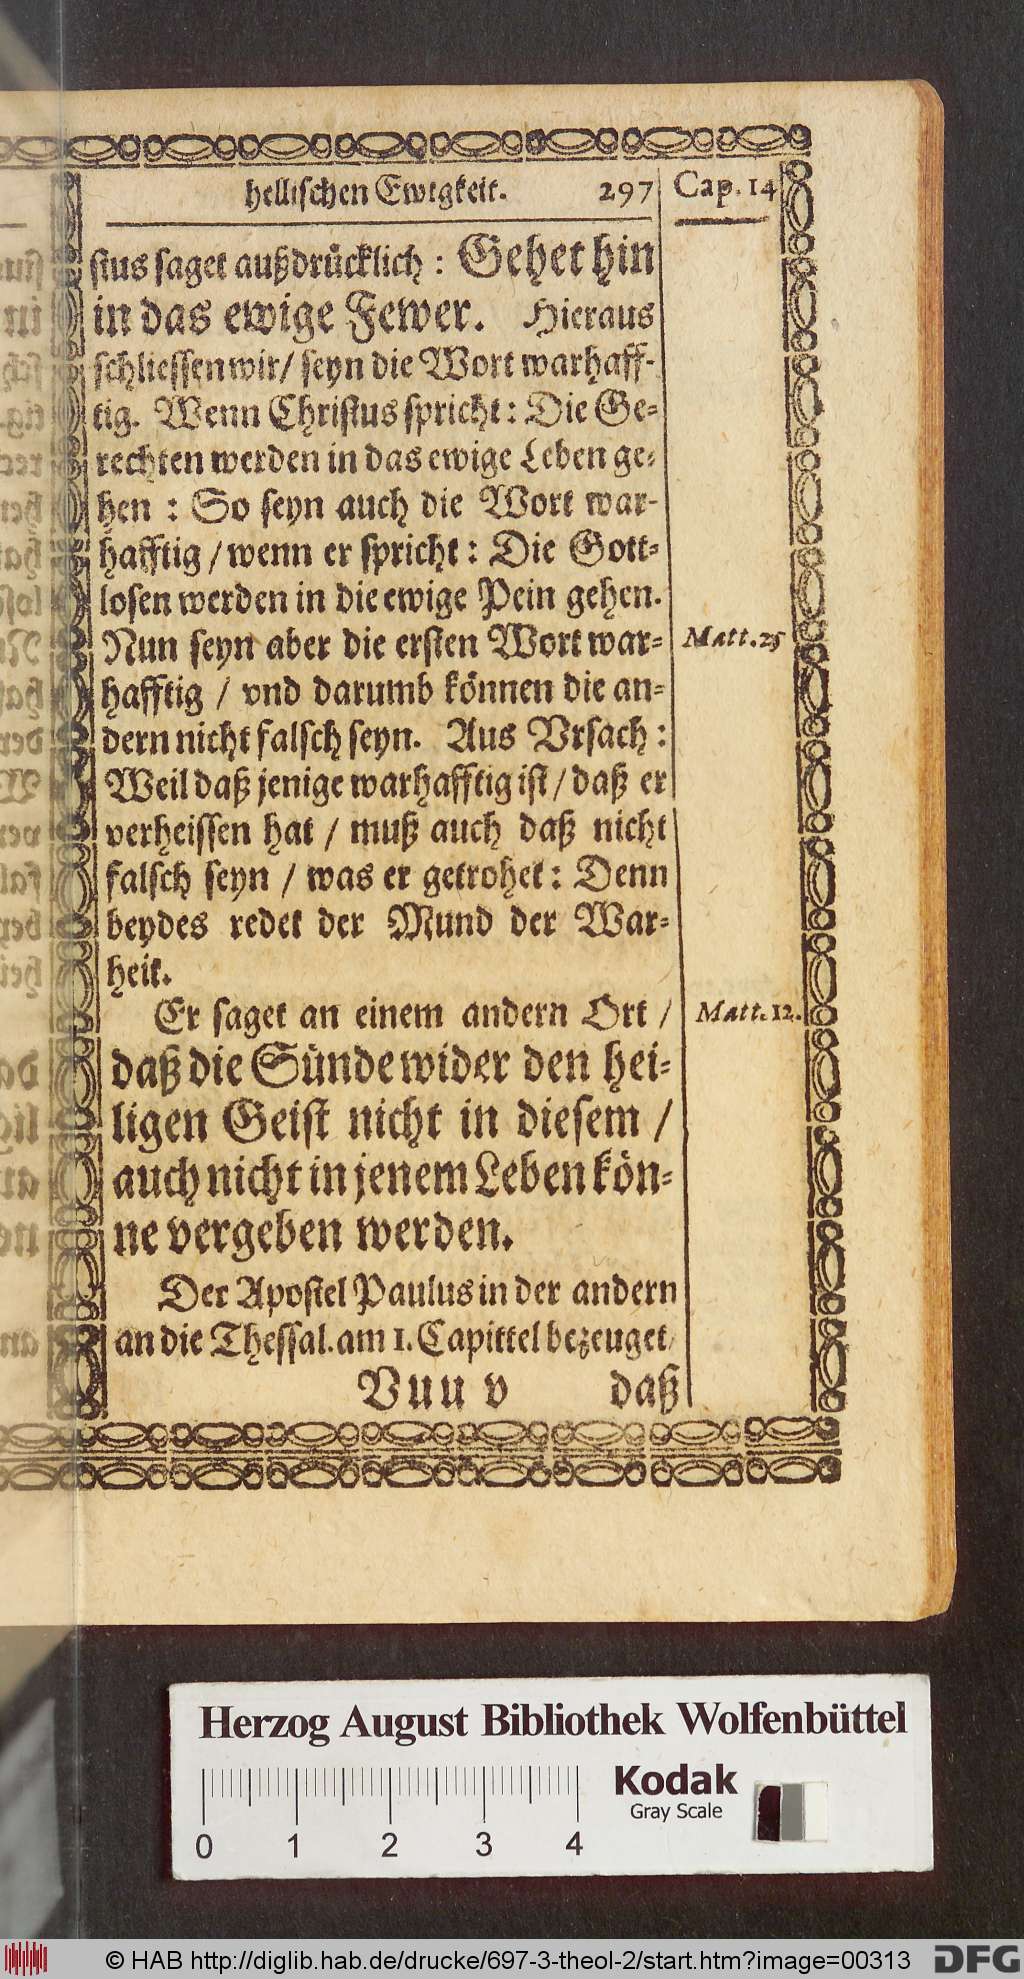 hellischen Ewigkeit. 297 Cap. 14
stus saget außdrücklich : Gehet hin
in das ewige Fewer. Hieraus
schliessen wir/ seyn die Wort warhaff-
tig. Wenn Christus spricht: Die Ge-
rechten werden in das ewige Leben ge-
hen : So seyn auch die Wort war-
hafftig / wenn er spricht: Die Gott-
losen werden in die ewige Pein gehen.
Nun seyn aber die ersten Wort war-
Matt. 25
hafftig / vnd darumb können die an-
dern nicht falsch seyn. Aus Vrsach :
Weil daß jenige warhafftig ist / daß er
verheissen hat / muß auch daß nicht
falsch seyn / was er getrohet: Denn
beydes redet der Mund der War-
heit.
Er saget an einem andern Ort /
Matt. 12.
daß die Sünde wider den hei-
ligen Geist nicht in diesem /
auch nicht in jenem Leben kön-
ne vergeben werden.
Der Apostel Paulus in der andern
an die Thessal. am 1. Capittel bezeuget/
Vuu v daß
Herzog August Bibliothek Wolfenbüttel
Kodak
Gray Scale
0 1 2 3 4
© HAB http://diglib.hab.de/drucke/697-3-theol-2/start.htm?image=00313
DFG